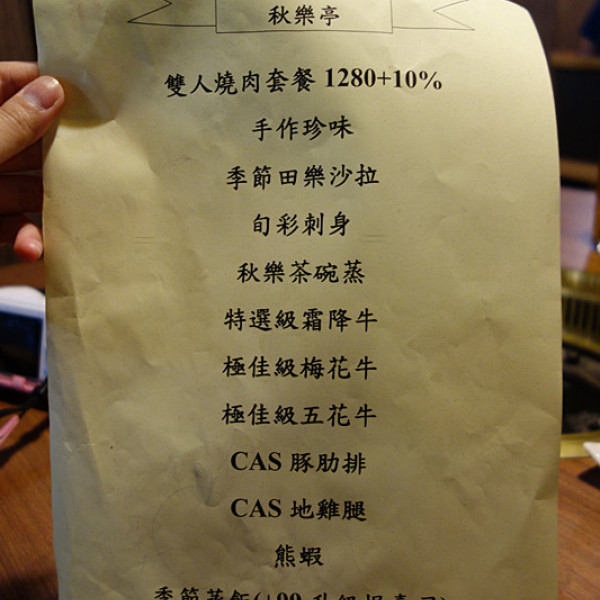 秋樂亭
雙人燒肉套餐 1280+10%
手作珍味
季節田樂沙拉
旬彩刺身
秋樂茶碗蒸
特選級霜降牛
極佳級梅花牛
極佳級五花牛
CAS 豚肋排
CAS 地雞腿
熊蝦
季節蒸飯(+99 升級